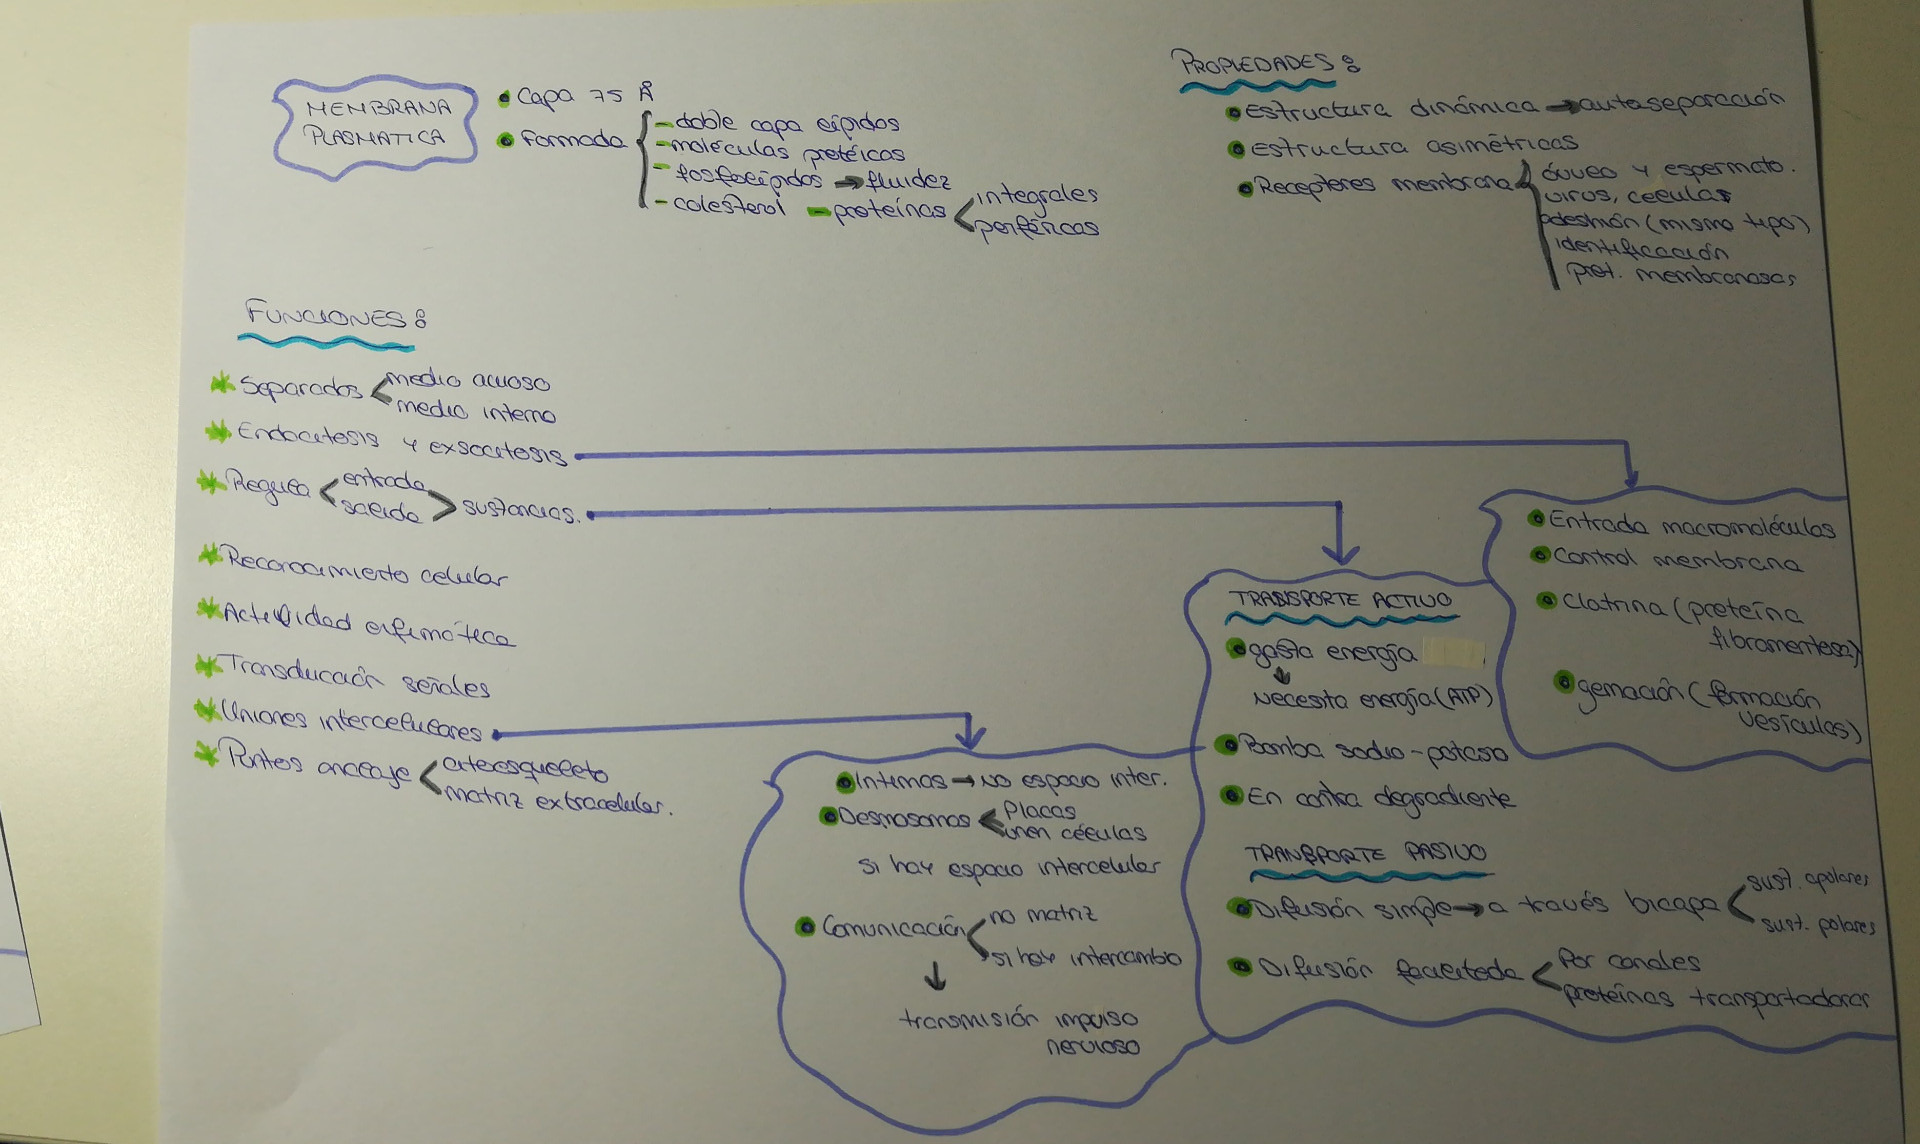 MEMBRANA
PLASMATICA
Capa 75 Å
Formada
- doble capa lípidos
- moléculas protéicas
- fosfolípidos → fluidez
- colesterol - proteínas
integrales
periféricas
PROPIEDADES:
Estructura dinámica → autoseparación
Estructura asimétricas
Recepteres membrana
óvulo y espermato.
virus, células
adeshión (mismo tipo)
identificación
prot. membranosas
FUNCIONES:
Separados
medio acuoso
medio interno
Endocitosis y exsocitosis
Regula
entrada
salida
sustancias.
Reconocimiento celular
Actividad enzimática
Transducción señales
Uniones intercelulares
Puntos anclaje
citoesqueleto
matriz extracelular.
Entrada macromoléculas
Control membrana
Clatrina (proteína
fibramentosa)
gemación (formación
vesículas)
TRANSPORTE ACTIVO
gasta energía
↓
Necesita energía (ATP)
Bomba sodio-potasio
En contra degradiente
TRANSPORTE PASIVO
Difusión simple → a través bicapa
sust. apolares
sust. polares
Difusión facilitada
Por canales
proteínas transportadoras
Intimas → No espacio inter.
Desmosomas
Placas
unen células
si hay espacio intercelular
Comunicación
no matriz
si hay intercambio
↓
transmisión impulso
nervioso